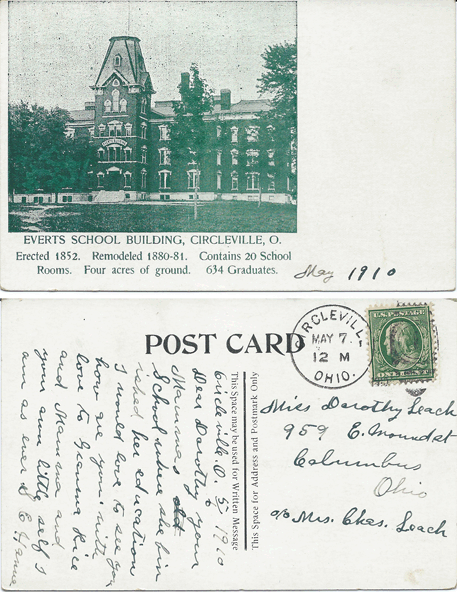 EVERTS SCHOOL BUILDING, CIRCLEVILLE, O.
Erected 1852. Remodeled 1880-81. Contains 20 School
Rooms. Four acres of ground. 634 Graduates.
May 1910
POST CARD
CIRCLEVILLE
MAY 7
12 M
OHIO.
U.S. POSTAGE
ONE CENT
This Space may be used for Written Message
This Space for Address and Postmark Only
Circleville. O. 5/ 1910
Dear Dorothy your
Mamma's
School where she
her education
I would love to see you
how are you with
love to Gramma Rice
and Mamma and
your own little self I
am as ever S E
Miss Dorothy Leach
959 E. Mound st
Columbus
Ohio
c/o Mrs. Chas. Leach